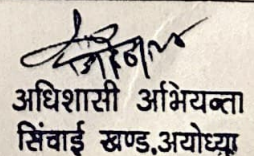 अधिशासी अभियन्ता
सिंचाई खण्ड,अयोध्या